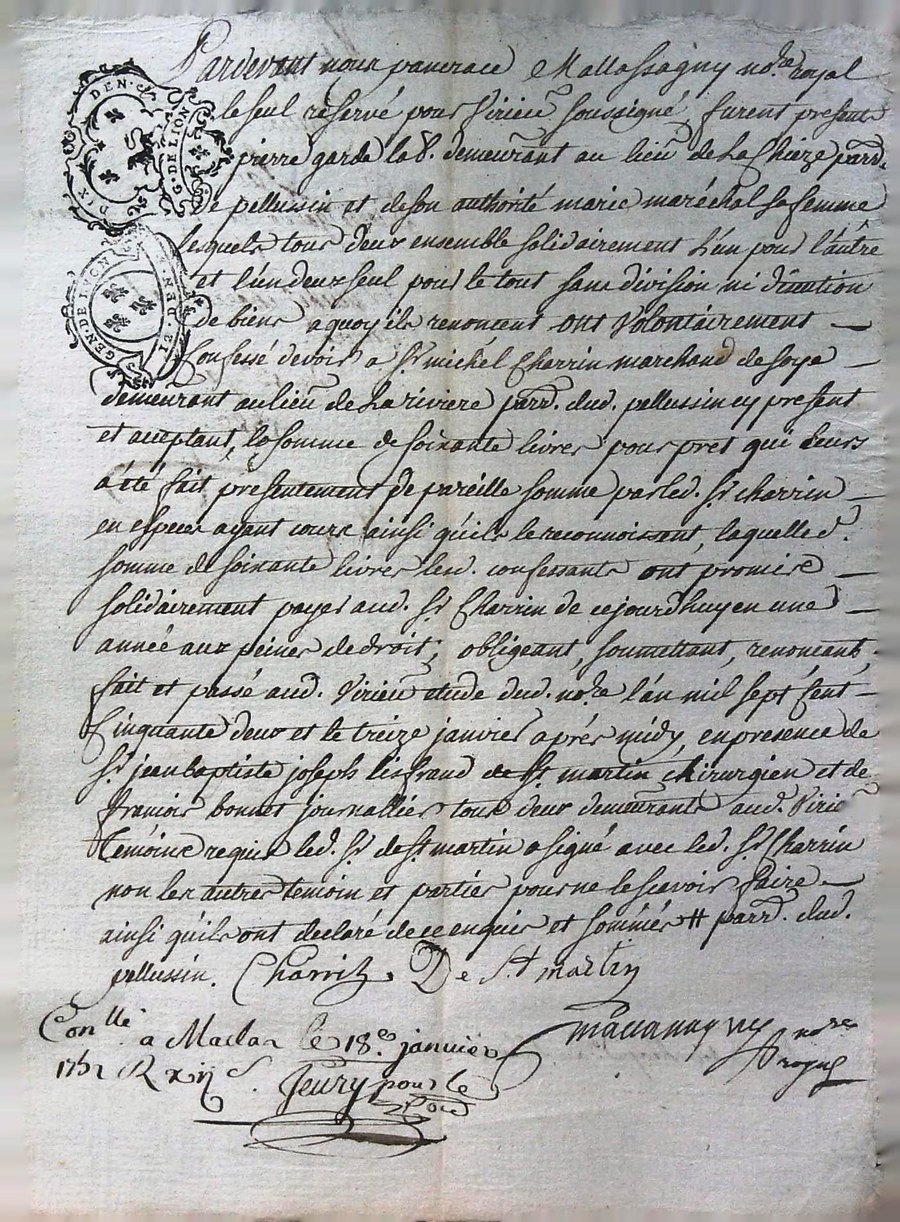 DIX DEN.ers
G. DE LION
GEN. DE LYON
DEN. ET
Pardevant nous pancrace Mallassagny no.re royal
le seul réservé pour Virieu soussigné, furent presents
pierre garde lab.r demeurant au lieu de La Chieze parr.
de pellussin et de son authorité marie maréchal sa femme
lesquels tous deux ensemble solidairement l'un pour l'autre
et l'un deux seul pour le tout sans division ni
de biens a quoy ils renoncent ont volontairement
Confessé devoir a Sr michel Charrin marchand de soye
demeurant au lieu de La riviere parr. dud. pellussin cy present
et acceptant, la somme de soixante livres pour pret qui leurs
a été fait presentement de pareille somme par led. Sr charrin
en especes ayant cours ainsi qu'ils le reconnoissent, laquelle d.
somme de soixante livres lesd. confessants ont promis
solidairement payer aud. Sr Charrin de cejourdhuy en une
année aux peines de droit; obligeant, soumettant, renoncant,
fait et passé aud. Virieu etude dud. no.re l'an mil sept cent
Cinquante deux et le treize janvier après midy, en presence de
Sr jean baptiste joseph lisfrand de St martin chirurgien et de
francois bonnet journallier tous deux demeurants aud. Virieu
Témoins requis led. Sr de St martin a signé avec led. Sr Charrin
non les autres temoin et parties pour ne le scavoir faire
ainsi qu'ils ont declaré de ce enquis et sommés # parr. dud.
pellussin. Charrin De St martin
Con.llé a Maclas le 18.e janvier
1752 R xij s. Jeury pour le
no.re
royal